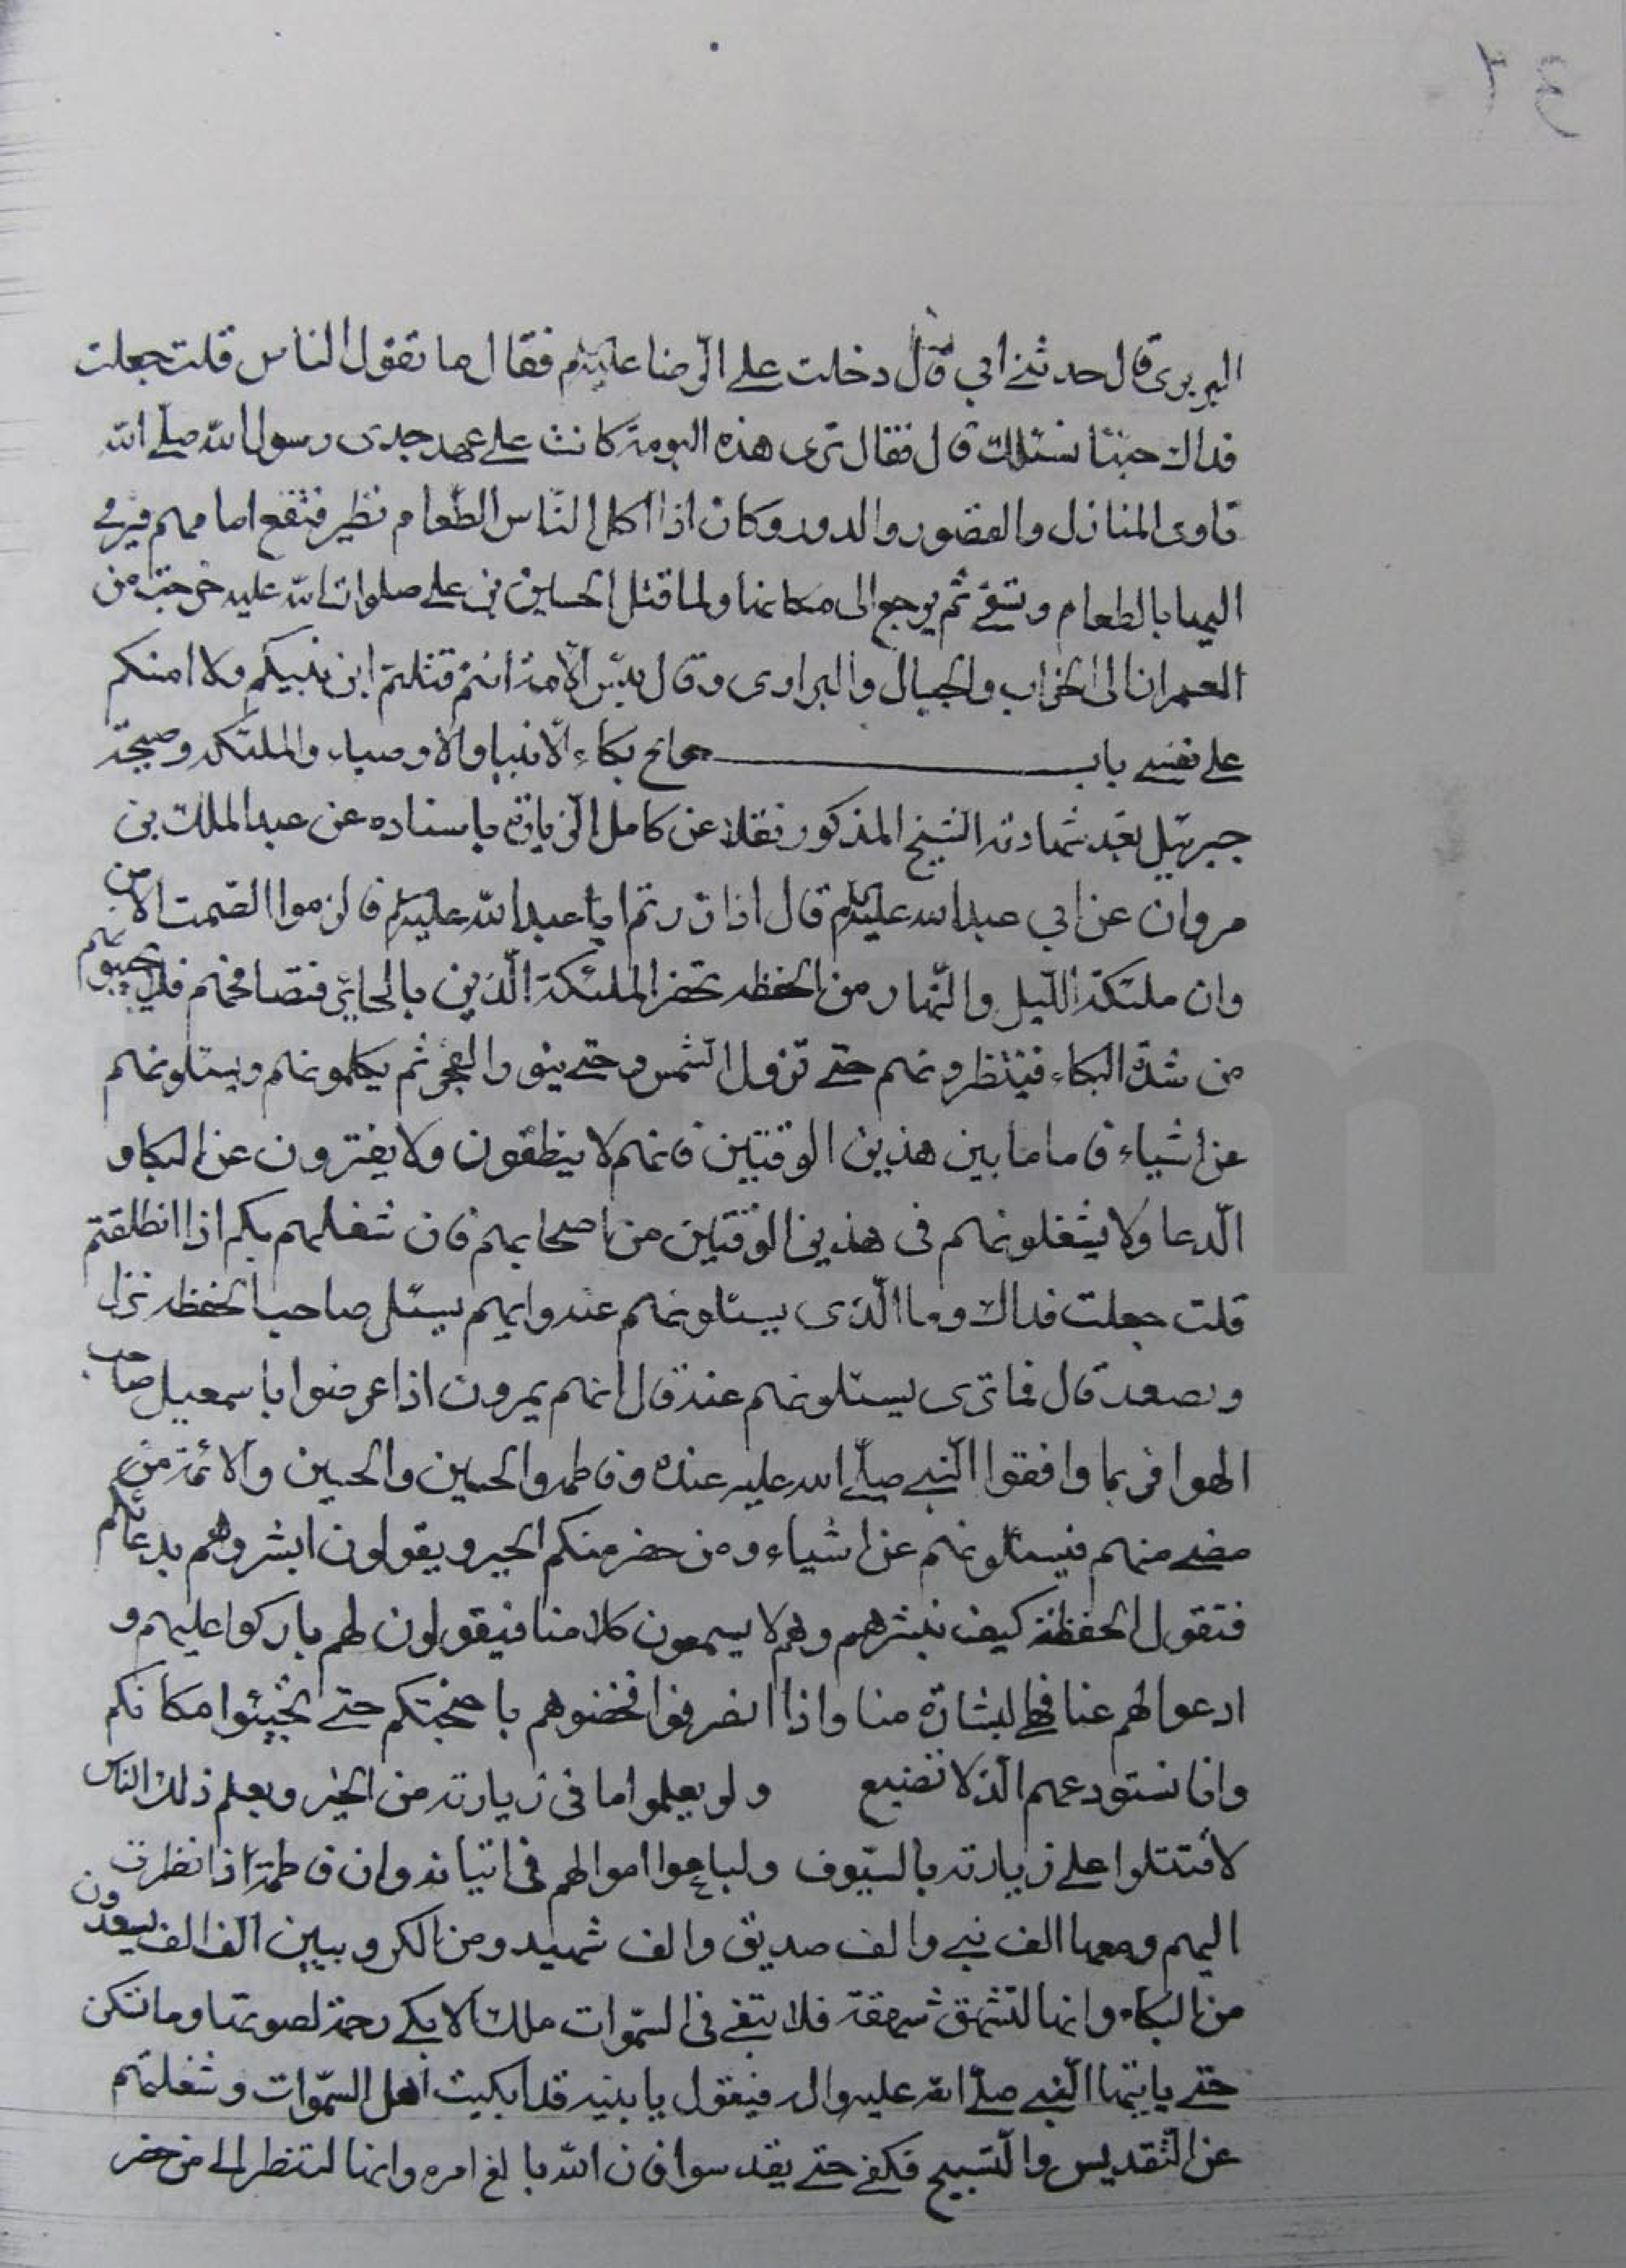 البربرى قال حدثنى ابى قال دخلت على الرضا عليه السلم فقال ما تقول الناس قلت جعلت
فداك جئنا نسئلك قال فقال ترى هذه البومة كانت على عهد جدى رسول الله صلى الله
تاوى المنازل والقصور والدور وكان اذا اكل الناس الطعام تطير فتقع امامهم فيرمى
اليها بالطعام وتسقى ثم يرجع الى مكانها ولما قتل الحسين بن على صلوات الله عليه خرجت من
العمران الى الخراب والجبال والبرارى وقال بئس الامة انتم قتلتم ابن نبيكم ولا امنكم
على نفسى باب جوامع بكاء الانبيا والاوصياء والملئكه وصيحة
جبرئيل بعد شهادته الشيخ المذكور نقلا عن كامل الزيارة باسناده عن عبد الملك بن
مروان عن ابي عبد الله عليه السلم قال اذا زرتم ابا عبد الله عليه السلم فالزموا الصمت الا من
وان ملئكة الليل والنهار من الحفظه تحضر الملئكة الذين بالحائر فتصافحهم فلا يجيبونهم
من شدة البكاء فينتظرونهم حتى تزول الشمس وحتى ينور الفجر ثم يكلمونهم ويسئلونهم
عن اشياء فاما ما بين هذين الوقتين فانهم لا ينطقون ولا يفترون عن البكا و
الدعا ولا يشغلونهم فى هذين الوقتين من اصحابهم فان شغلهم بكم اذا انطلقتم
قلت جعلت فداك وما الذى يسئلونهم عنه وايهم يسئل صاحب الحفظه نزل
وصعد قال فما ترى يسئلونهم عنه قال انهم يمرون اذا عرضوا باسمعيل صاحب
الهوا فربما وافقوا النبى صلى الله عليه عنده وفاطمه والحسن والحسين والائمة من
مضى منهم فيسئلونهم عن اشياء ومن حضر منكم الخير ويقولون ابشروهم بدعائكم
فتقول الحفظة كيف نبشرهم وهم لا يسمعون كلامنا فيقولون لهم باركوا عليهم و
ادعوا لهم عنا فهى البشارة منا واذا انصرفوا فحفوهم باجنحتكم حتى يحسوا مكانكم
وانا نستودعهم الذ لا تضيع ولو يعلموا ما فى زيارته من الخير ويعلم ذلك الناس
لاقتتلوا على زيارته بالسيوف ولباعوا اموالهم فى اتيانه وان فاطمة اذا نظرت
اليهم ومعها الف نبى والف صديق والف شهيد ومن الكروبيين الف الف يسعدون
من البكاء وانها لتشهق شهقة فلا يبقى فى السموات ملك الا بكى رحمة لصوتها وما تسكن
حتى ياتيها النبى صلى الله عليه واله فيقول يا بنيه قد ابكيت اهل السموات وشغلتهم
عن التقديس والتسبيح فكفى حتى يقدسوا فان الله بالغ امره وانها لتنظر الى من حضر